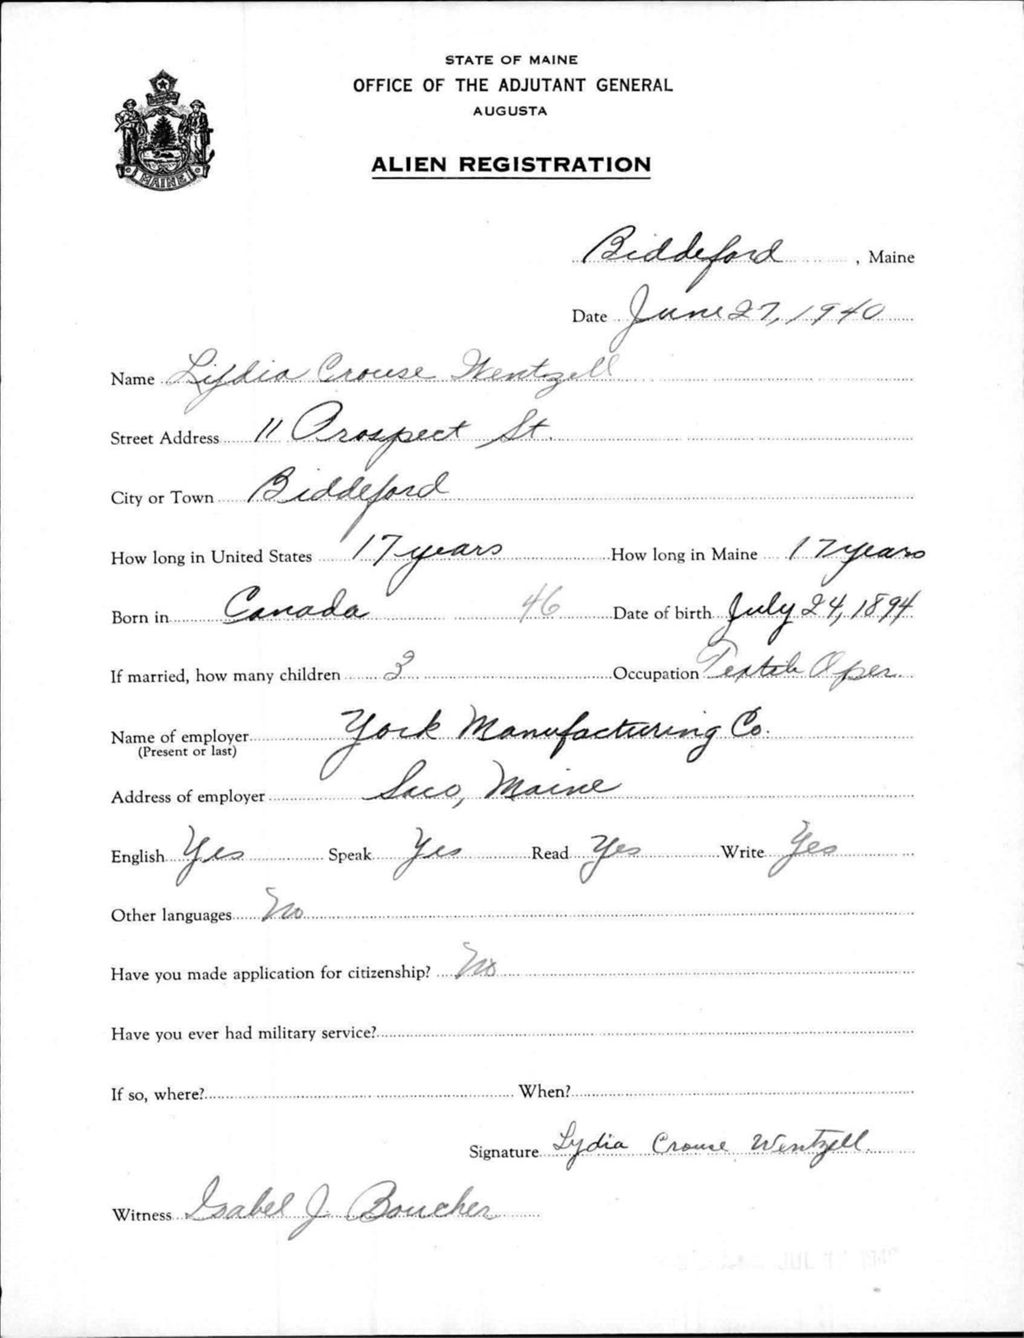 STATE OF MAINE
OFFICE OF THE ADJUTANT GENERAL
AUGUSTA
ALIEN REGISTRATION
MAINE
Biddeford, Maine
Date June 27, 1940
Name Lydia Crouse Wentzell
Street Address 11 Prospect St.
City or Town Biddeford
How long in United States 17 years How long in Maine 17 years
Born in Canada 46 Date of birth July 24, 1894
If married, how many children 3 Occupation Textile Oper.
Name of employer York Manufacturing Co.
(Present or last)
Address of employer Saco, Maine
English Yes Speak Yes Read Yes Write Yes
Other languages No
Have you made application for citizenship? No
Have you ever had military service?
If so, where? When?
Signature Lydia Crouse Wentzell
Witness Isabel J. Boucher